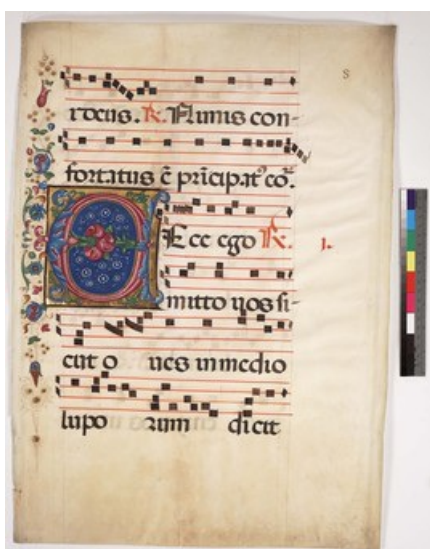 ℟. Nimis con-
fortatus ē prīcipatꝰ eoꝝ.
Ecce ego ℟. 1.
mitto uos si-
cut o ues in medio
lupo rum dicit